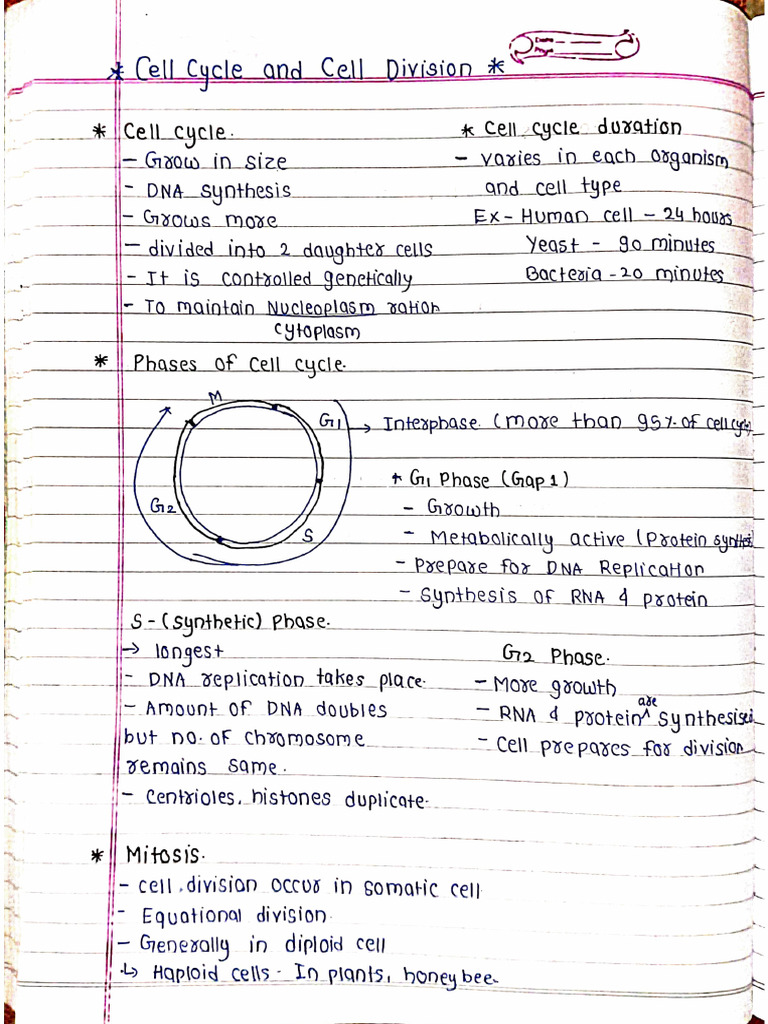 * Cell Cycle and Cell Division *
* Cell cycle.
- Grow in size
- DNA synthesis
- Grows more
- divided into 2 daughter cells
- It is controlled genetically
- To maintain Nucleoplasm ration
cytoplasm
* Cell cycle duration
- varies in each organism
and cell type
Ex - Human cell - 24 hours
Yeast - 90 minutes
Bacteria - 20 minutes
* Phases of cell cycle.
M
G1
S
G2
→ Interphase (more than 95% of cell cycle)
* G1 Phase (Gap 1)
- Growth
- Metabolically active (Protein
- Prepare for DNA Replication
- Synthesis of RNA & protein
S - (Synthetic) Phase.
→ longest
- DNA replication takes place.
- Amount of DNA doubles
but no. of chromosome
remains same.
- Centrioles, histones duplicate.
G2 Phase.
- More growth
- RNA & protein ^are synthesised
- Cell prepares for division
* Mitosis.
- cell division occur in somatic cell
- Equational division.
- Generally in diploid cell
↳ Haploid cells - In plants, honey bee.